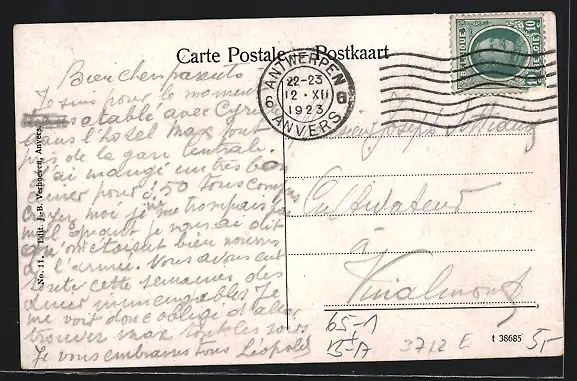 Carte Postale Postkaart
ANTWERPEN
22-23
12 · XII
1923
6 6
ANVERS
BELGIQUE
10
Bien chers parents
Je suis pour le moment
attablé avec
dans l'hotel Max tout
près de la gare centrale.
J'ai mangé un très bon
diner pour 3,50 tous compris
Croyez moi je me trompais
mal quand je vous ai dit
qu'on étaient bien nourris
à l'armée. Vous avons eut
toute cette semaines des
diner immangeables Je
me voit donc obligé d'aller
trouver max tout les jours
Je vous embrasse tous Léopold
Monsieur Joseph
Cultivateur
à
Vinalmont
No. 11 Edit. J.-B. Verhoeven, Anvers
65-1
B-A
3712 E
t 38685
5,-